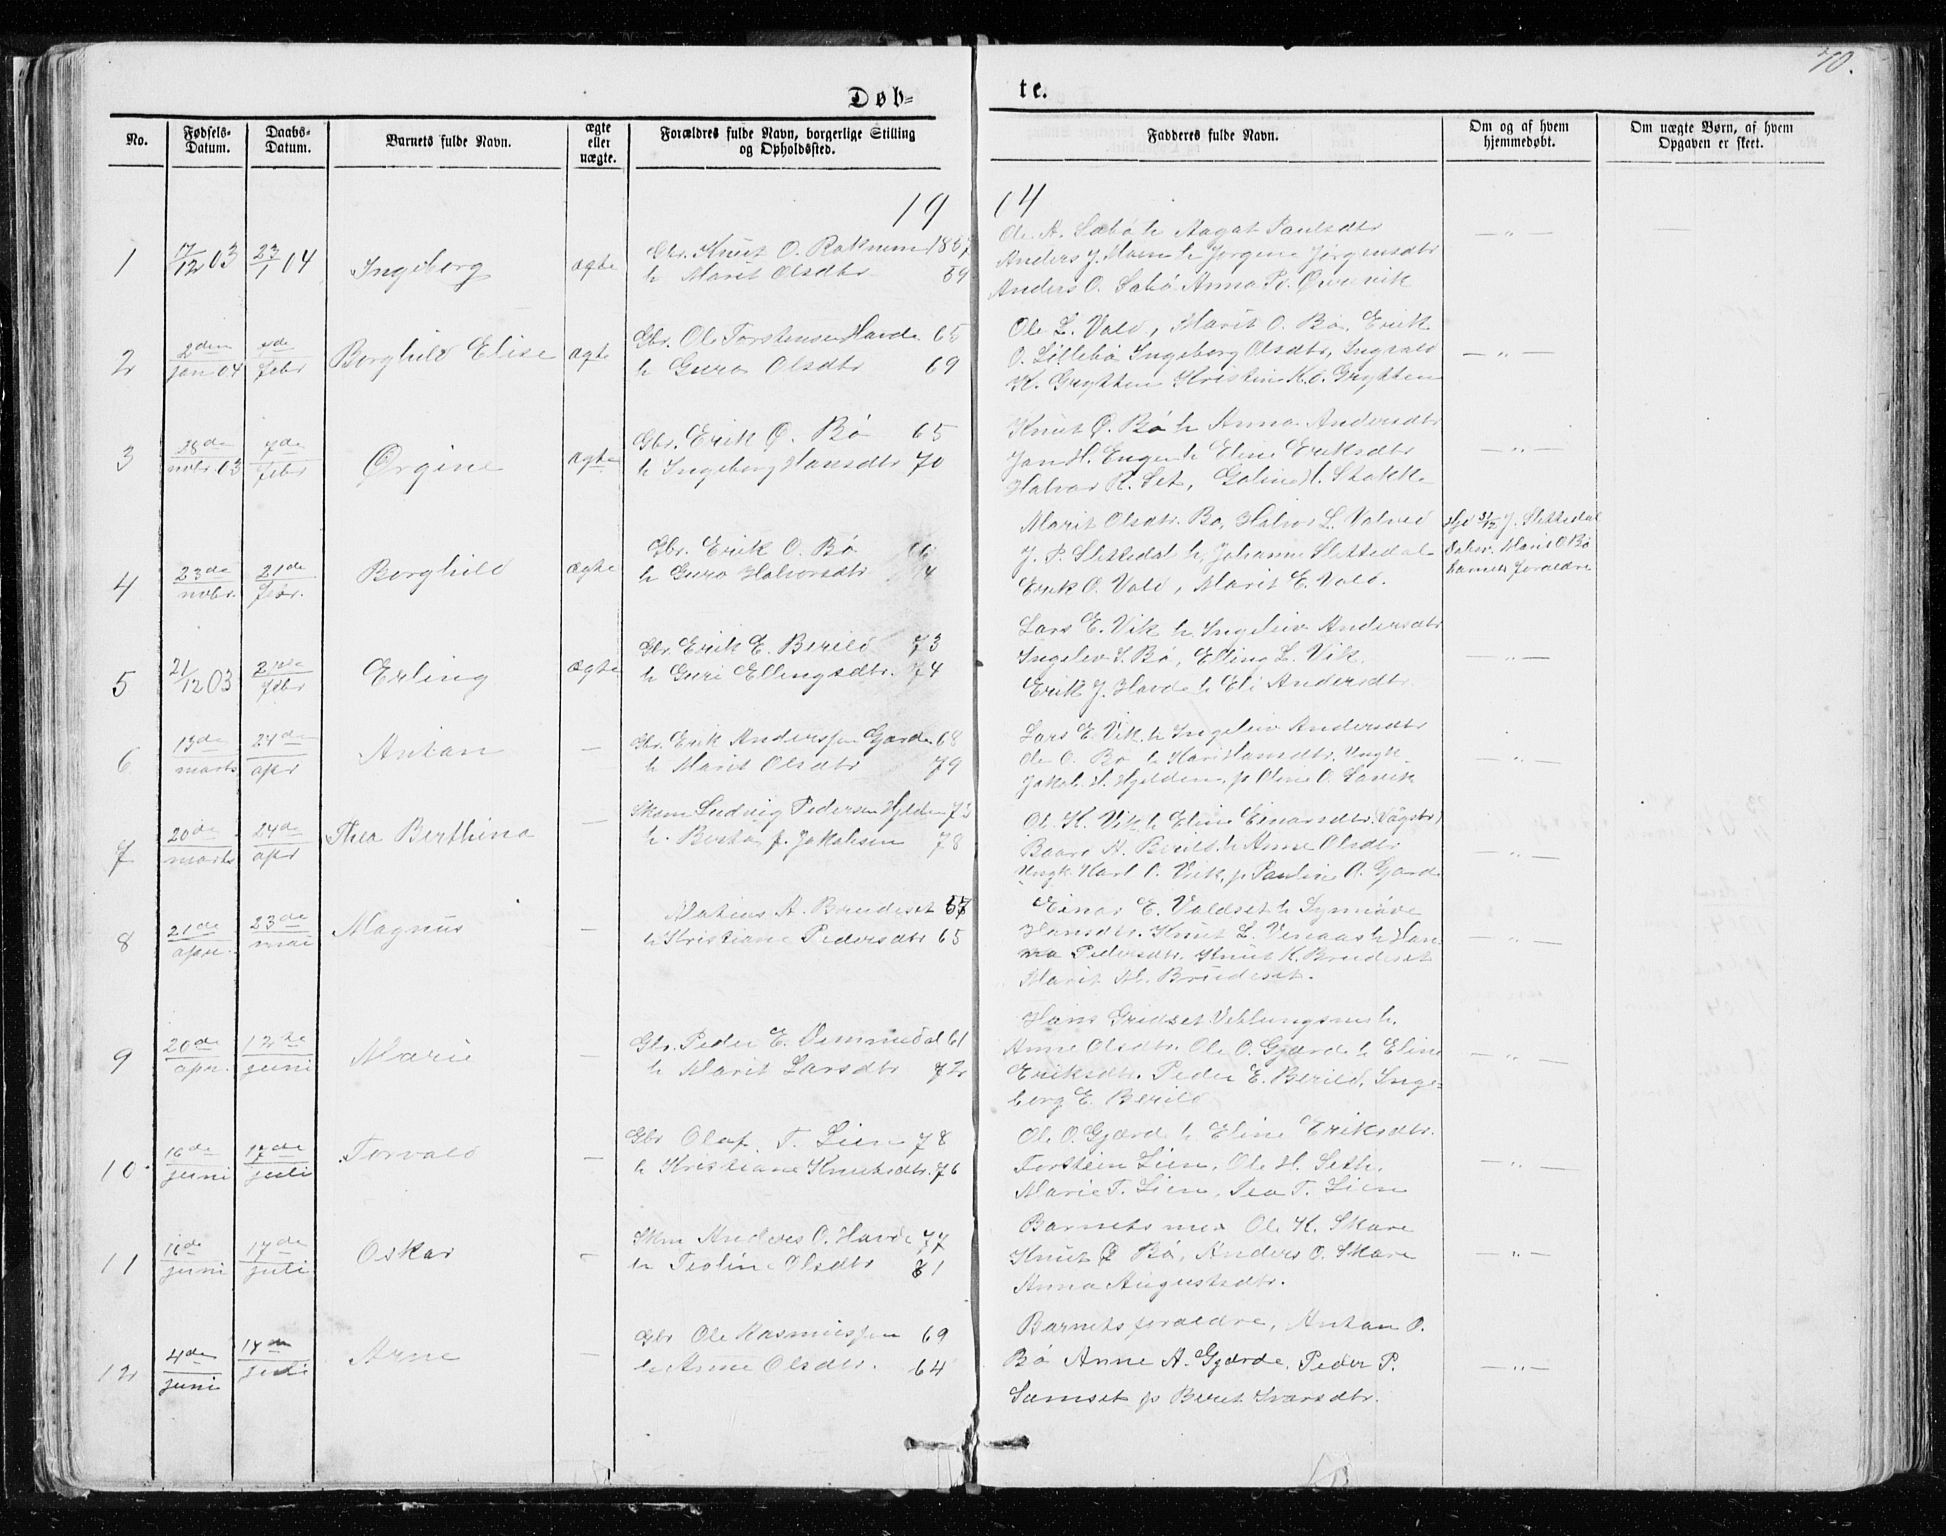 70.
Døb= te.
No. Fødsels-Datum. Daabs-Datum. Barnets fulde Navn. ægte eller uægte. Forældres fulde Navn, borgerlige Stilling og Opholdssted. Fadderes fulde Navn. Om og af hvem hjemmedøbt. Om uægte Børn, af hvem Opgaven er skeet.
19 04
1 17/12 03 23/1 04 Ingeborg ægte Gbr. Knut O. Roknem 1857
h Marit Olsdtr 59
Ole A. Sæbø h Aagat Paulsdtr
Anders J. Moen h Jørgine Jørgensdtr
Anders O. Sæbø Anna P. Øvervik
— " —
2 2den jan 04 febr Borghild Elise ægte Gbr. Ole Torstensen Havde 65
h Guro Olsdtr 69
Ole L. Vold, Marit O. Bø, Erik
O. Lillebø Ingeborg Olsdtr, Ingvald
K. Grytten Kristine K. O. Grytten
— " —
3 28de nvbr 03 7de febr Ørgine ægte Gbr. Erik O. Bø 65
h Ingeborg Hansdtr 70
Knut O. Bø h Anna Andersdtr
Jon H. Enge h Eline Eriksdtr
Halvor R. Set, Goline H. Stokke
— " —
4 23de nvbr. 21de febr. Borghild ægte Gbr. Erik O. Bø
h Guro Halvorsdtr
Marit Olsdtr. Bø, Halvor L. Volved
J. P. Slettedal h Johanne Slettedal
Erik O. Vold, Marit E. Vold.
J. Slettedal
Marit O Bø
barnets foraldre
5 21/12 03 21de febr Erling ægte Gbr. Erik E. Berild 73
h Guri Ellingsdtr. 74
Lars E. Vik h Ingeleiv Andersdtr
Ingelev L. Bø, Elling L. Vik.
Erik J. Havde h Eli Andersdtr.
— " —
6 13de marts 24de apr Anton — Gbr. Erik Anderssen Gjørde 68
h Marit Olsdtr 79
Lars E. Vik h Ingeleiv Andersdtr
Ole O. Bø h Kari Hansdtr. Ungk.
Jakob L. Hjelden, p Oline O. Sævik
— " —
7 20de marts 24de apr Thea Berthina — Skom Ludvig Pedersen Hjelden 73
h. Berta f. Jakobsen 78
Ole K. Vik h Eline Einarsdtr (Vågstr)
Baard A. Berild h Anne Olsdtr
Ungk. Karl O. Vik, p. Pauline O. Gjørde
— " —
8 21de apr. 23de mai Magnus — Matias A. Brudeset 57
h Kristiane Pedersdtr 65
Einar E. Voldset h Synnøve
Hansdtr. Knut L. Venaas h Han-
na Pedersdtr. Knut K. Brudeset
Marit M. Brudeset.
— " —
9 20de apr. 12te juni Marie — Gbr. Peder E. Dømmedal 61
h Marit Larsdtr 72
Hans Gridset Veblungsnes h.
Anne Olsdtr. Ole O. Gjærde h Eline
Eriksdtr. Peder E. Berild, Inge-
borg E. Berild
— " —
10 16de juni 17de juli Torvald — Gbr Olaf T. Lien 78
h Kristiane Knutsdtr. 76
Ole O. Gjærde h Eline Eriksdtr.
Torstein Lien. Ole H. Seth.
Marie T. Lien, Tea T. Lien
— " —
11 16de juni 17de juli Oskar — Skm Anders O. Havde 77
h Teoline Olsdtr 81
Barnets mor Ole K. Skare
Knut O Bø, Anders O. Skare
Anna Augustsdtr.
— " —
12 4de juni juli Arne — Gbr Ole Rasmussen 69
h Anne Olsdtr. 64
Barnets foraldre, Anton O.
Bø Anne A. Gjørde. Peder P.
Samset p Beret Ivarsdtr.
— " —